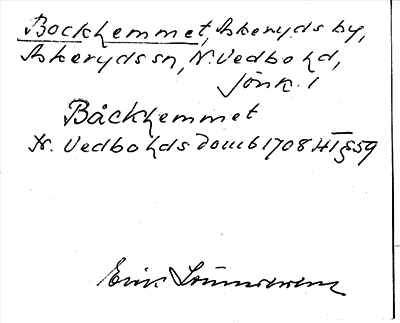 Bockhemmet, Askeryds by,
Askeryds sn, N. Vedbo hd,
Jönk. l
Båckhemmet
N. Vedbo hds domb 1708 HT § 59
Erik